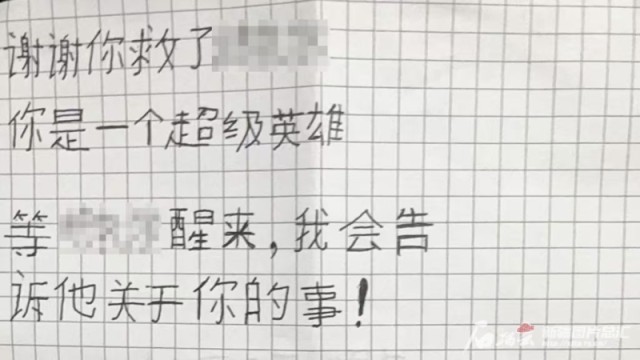 谢谢你救了
你是一个超级英雄
等醒来，我会告
诉他关于你的事！